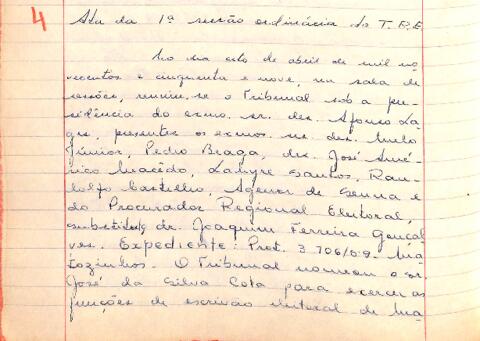 4 Ata da 1ª sessão ordinária do T.R.E.
No dia oito de abril de mil no
vecentos e cinquenta e nove, na sala de
sessões, reuniu-se o Tribunal sob a pre-
sidência do exmo. sr. des. Afonso La-
ges, presentes os exmos. srs. des. Mello
Júnior, Pedro Braga, drs. José Amé-
rico Macêdo, Labyre Santos, Ran-
dolfo Castilho, Agenor de Senna e
do Procurador Regional Eleitoral,
substituto dr. Joaquim Ferreira Gonçal
ves. Expediente: Prot. 3.706/59. Ma
tozinhos. O Tribunal nomeou o sr.
José da Silva Cota para exercer as
funções de escrivão eleitoral de Ma